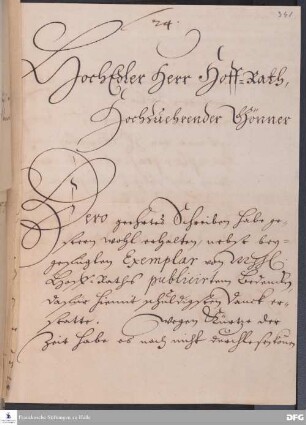 24.
HochEdler Herr Hoff=Rath,
Hochzuehrender Gönner
Dero geehrtes Schreiben habe ge-
stern wohl erhalten, nebst bey-
gefügten Exemplar von
Hoch. Raths publicirtem Bedencken,
dafür hiemit schuldigsten Danck er-
statte. Wegen Kürtze der
Zeit habe es noch nicht durchlesen können
Franckesche Stiftungen zu Halle
DFG